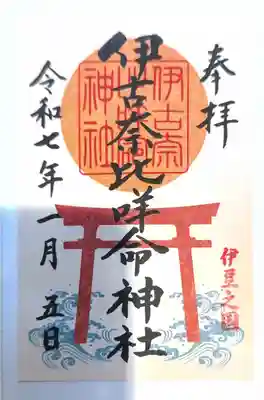 奉拝
伊古奈
神社
伊古奈比咩命神社
伊豆之國
令和七年一月五日